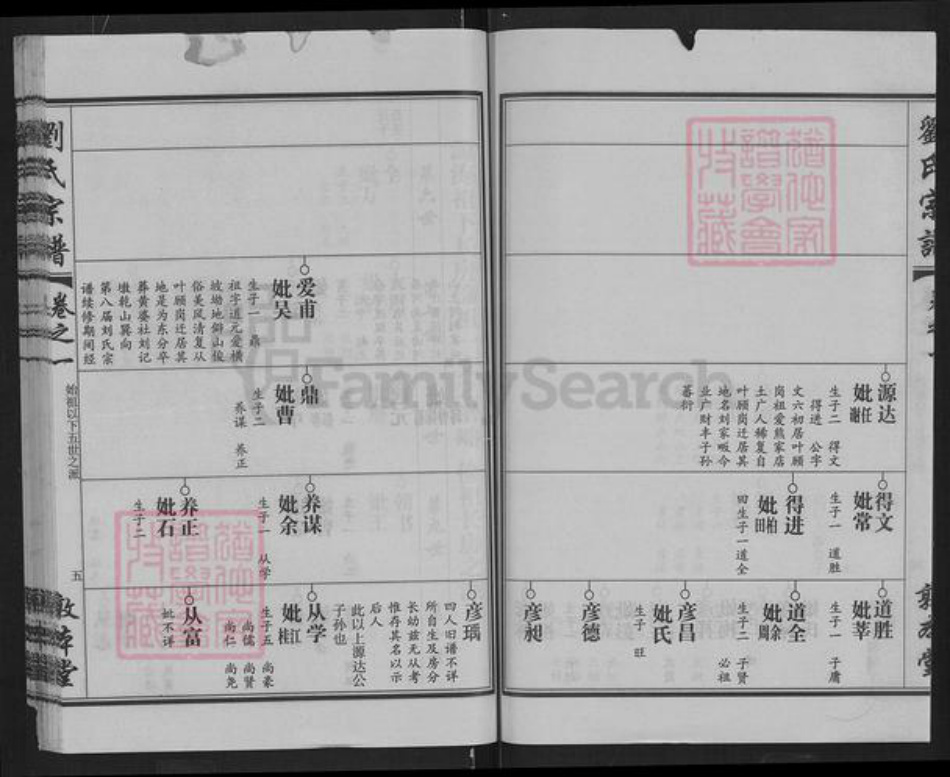 源达
妣任
谢
生子二 得文
得进 公字
文六初居叶顾
岗祖爱熊家店
土广人稀复自
叶顾岗迁居其
地名刘家畈今
业广财丰子孙
蕃衍
得文
妣常
生子一 道胜
得进
妣柏
田
田生子一道全
道胜
妣莘
生子一 子庸
道全
妣余
周
生子二 子贤
必祖
彦昌
妣氏
生子 旺
彦德
彦昶
刘氏宗谱
卷之一
始祖以下五世之派
五
敦本堂
爱甫
妣吴
生子一 鼎
祖字道元爱横
坡坳地僻山俊
俗美风清复从
叶顾岗迁居其
地是为东分卒
葬黄婆社刘记
墩乾山巽向
第八届刘氏宗
谱续修期间经
鼎
妣曹
生子二
养谋 养正
养谋
妣余
生子一 从学
养正
妣石
生子二
彦瑀
四人旧谱不详
所自生及房分
长幼兹无从考
惟存其名以示
后人
此以上源达公
子孙也
从学
妣江
桂
生子五 尚豪
尚儒 尚贤
尚仁 尚尧
从富
妣不详
FamilySearch